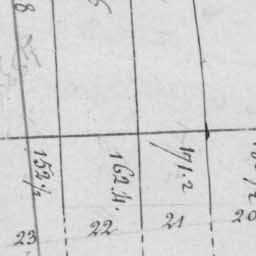 8
152½
162.4.
171.2
23
22
21
20